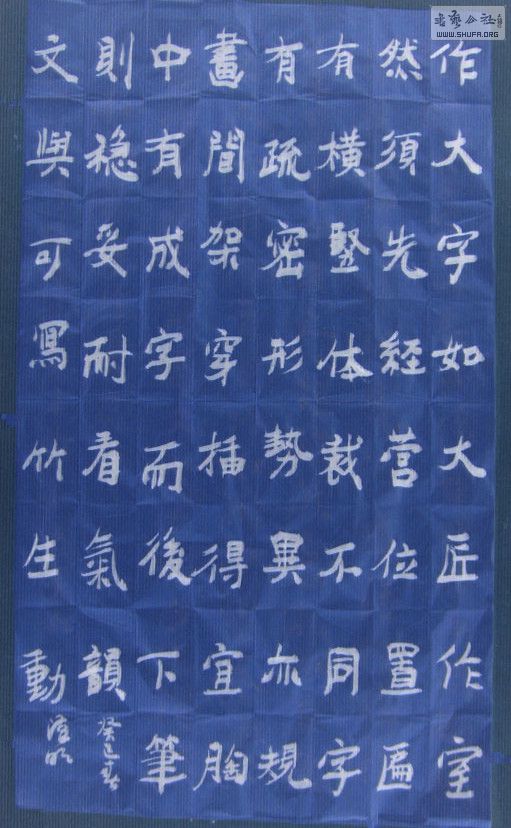 作大字如大匠作室
然須先経营位置匾
有横竪体裁不同字
有疏密形勢異亦規
畫間架穿插得宜胸
中有成字而後下筆
則稳妥耐看氣韻
文與可寫竹生動
癸巳春
书艺公社
WWW.SHUFA.ORG